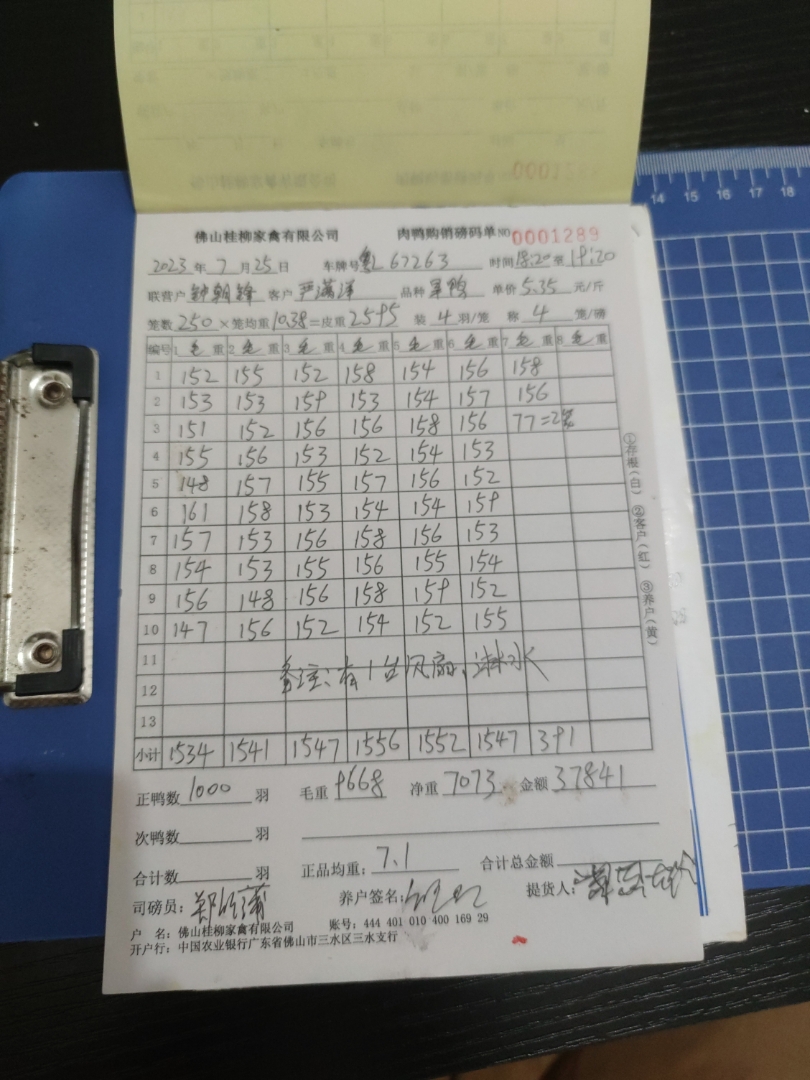 佛山桂柳家禽有限公司 肉鸭购销磅码单 NO 0001289
2023 年 7 月 25 日 车牌号 L 67263 时间 18:20 至 19:20
联营户 钟朝锋 客户 严满洋 品种 单价 5.35 元/斤
笼数 250 ×笼均重 10.38 =皮重 2595 装 4 羽/笼 称 4 笼/磅
编号 1 毛 重 2 毛 重 3 毛 重 4 毛 重 5 毛 重 6 毛 重 7 毛 重 8 毛 重
1 152 155 152 158 154 156 158
2 153 153 159 153 154 157 156
3 151 152 156 156 158 156 77=2笼
4 155 156 153 152 154 153
5 148 157 155 157 156 152
6 161 158 153 154 154 159
7 157 153 156 158 156 153
8 154 153 155 156 155 154
9 156 148 156 158 159 152
10 147 156 152 154 152 155
11
备注:有1台风扇、淋水
12
13
小计 1534 1541 1547 1556 1552 1547 391
正鸭数 1000 羽 毛重 9668 净重 7073 金额 37841
次鸭数 羽
合计数 羽 正品均重: 7.1 合计总金额
司磅员: 养户签名: 提货人:
户 名: 佛山桂柳家禽有限公司 账号: 444 401 010 400 169 29
开户行: 中国农业银行广东省佛山市三水区三水支行
①存根(白) ②客户(红) ③养户(黄)
14 15 16 17 18